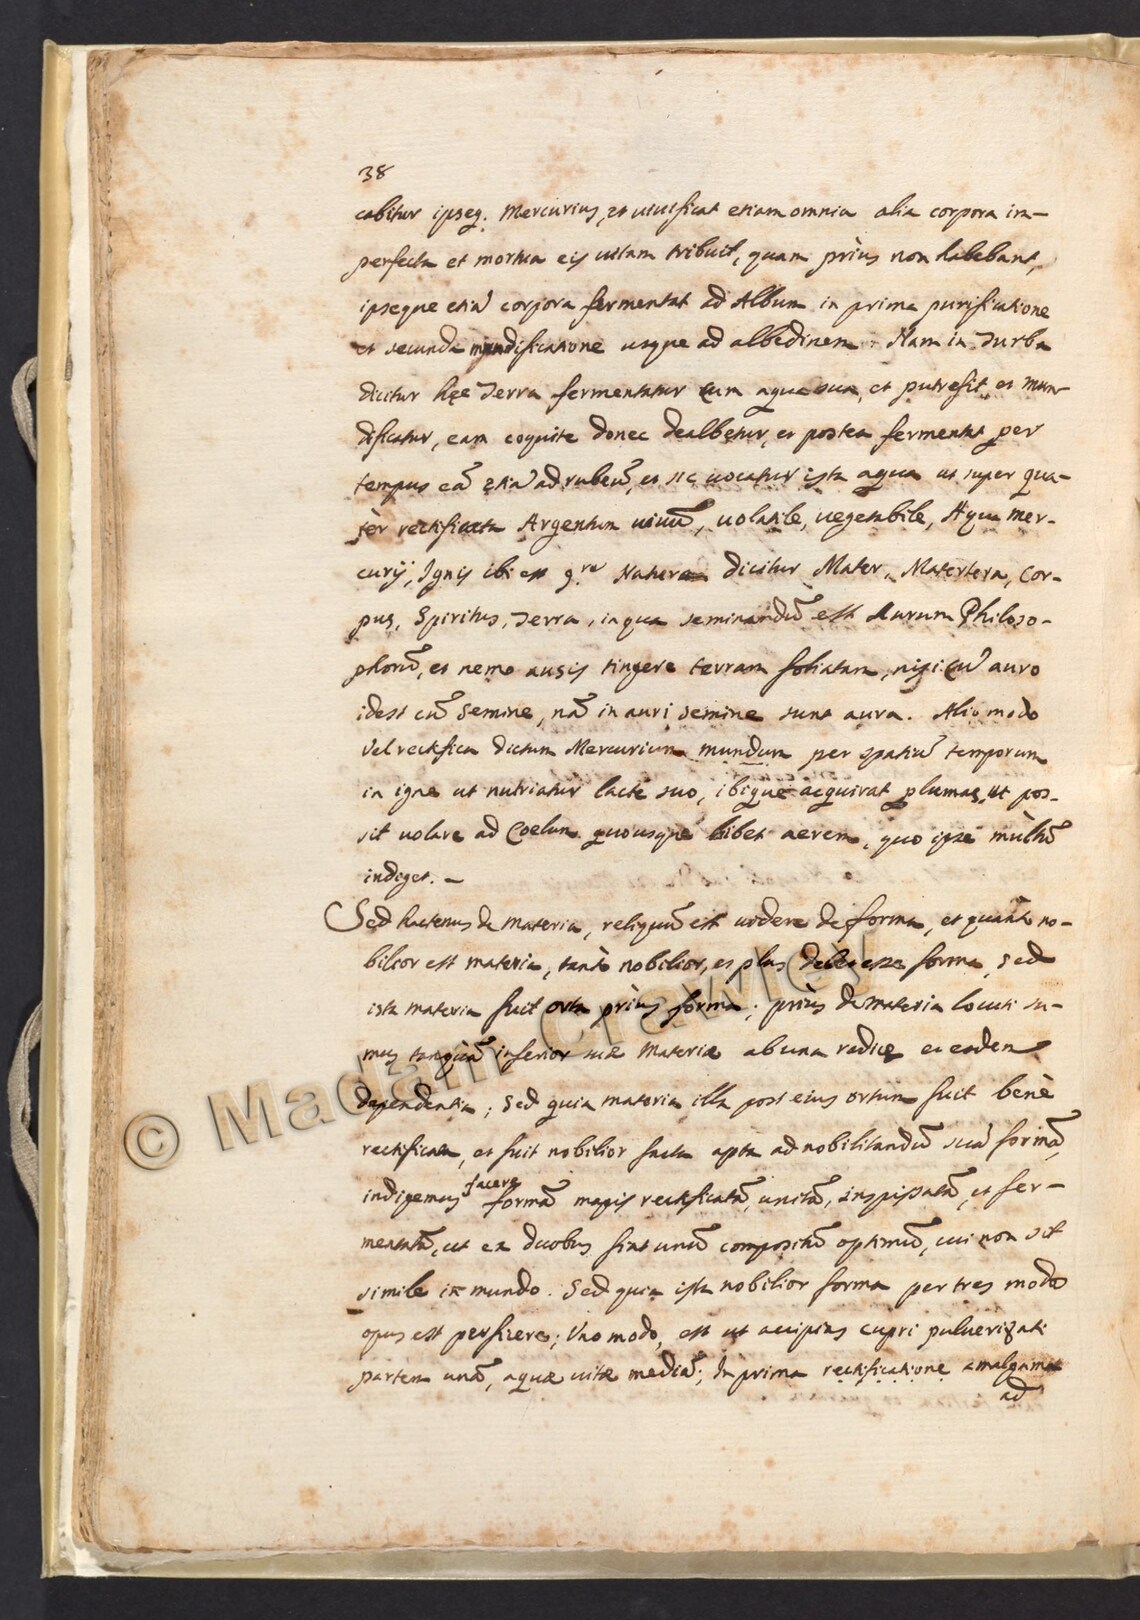 38
cabitur ipseq. Mercurius, et uiuificat etiam omnia alia corpora im-
perfecta et mortua eis uitam tribuit, quam priùs non habebant,
ipseque etiã corpora fermentat ad Album in prima purificatione
et secunda mundificatione usque ad albedinem. Nam in Turba
dicitur hęc Terra fermentatur cum aqua sua, et putrefit, et mun-
dificatur, eam coquite donec dealbetur, et postea fermentat per
tempus eã etiã ad rubeũ, et sic uocatur ista aqua ut super qua-
tèr rectificata Argentum uiuũ, uolatile, uegetabile, Aqua Mer-
curij, Ignis ibi est Naturam dicitur Mater, Matertera, Cor-
pus, Spiritus, Terra, in qua seminandũ est Aurum Philoso-
phorũ, et nemo ausis tingere terram foliatam, nisi cũ auro
idest cũ semine, nã in auri semine sunt aura. Alio modo
Vel rectifica dictum Mercurium mundum per spatiũ temporum
in igne ut nutriatur lacte suo, ibique acquirat plumas, ut pos-
sit uolare ad Coelum quousque bibet aerem, quo ipse mùltũ
indiget. —
Sed hactenus de materia, reliquũ est uidere de forma, et quantò no-
bilior est materia, tantò nobilior, et plus debet esse forma, sed
ista materia fuit orta priùs forma; priùs de materia locuti su-
mus tanquã inferior suæ Materiæ ab una radice et eadem
dependentia; sed quia materia illa post eius ortum fuit benè
rectificata, et fuit nobilior facta apta ad nobilitandũ suã formã,
indigemus facere formã magis rectificatã, unitã, inspissatã, et fer-
mentatã, ut ex duobus fiat unũ compositũ optimũ, cui non sit
simile in mundo. Sed quia ista nobilior forma per tres modos
opus est perficere; Vno modo, est ut accipias cupri puluerizati
partem unã, aquæ uitæ mediã; In prima rectificatione amalgamat
ad
© Madam Crawley